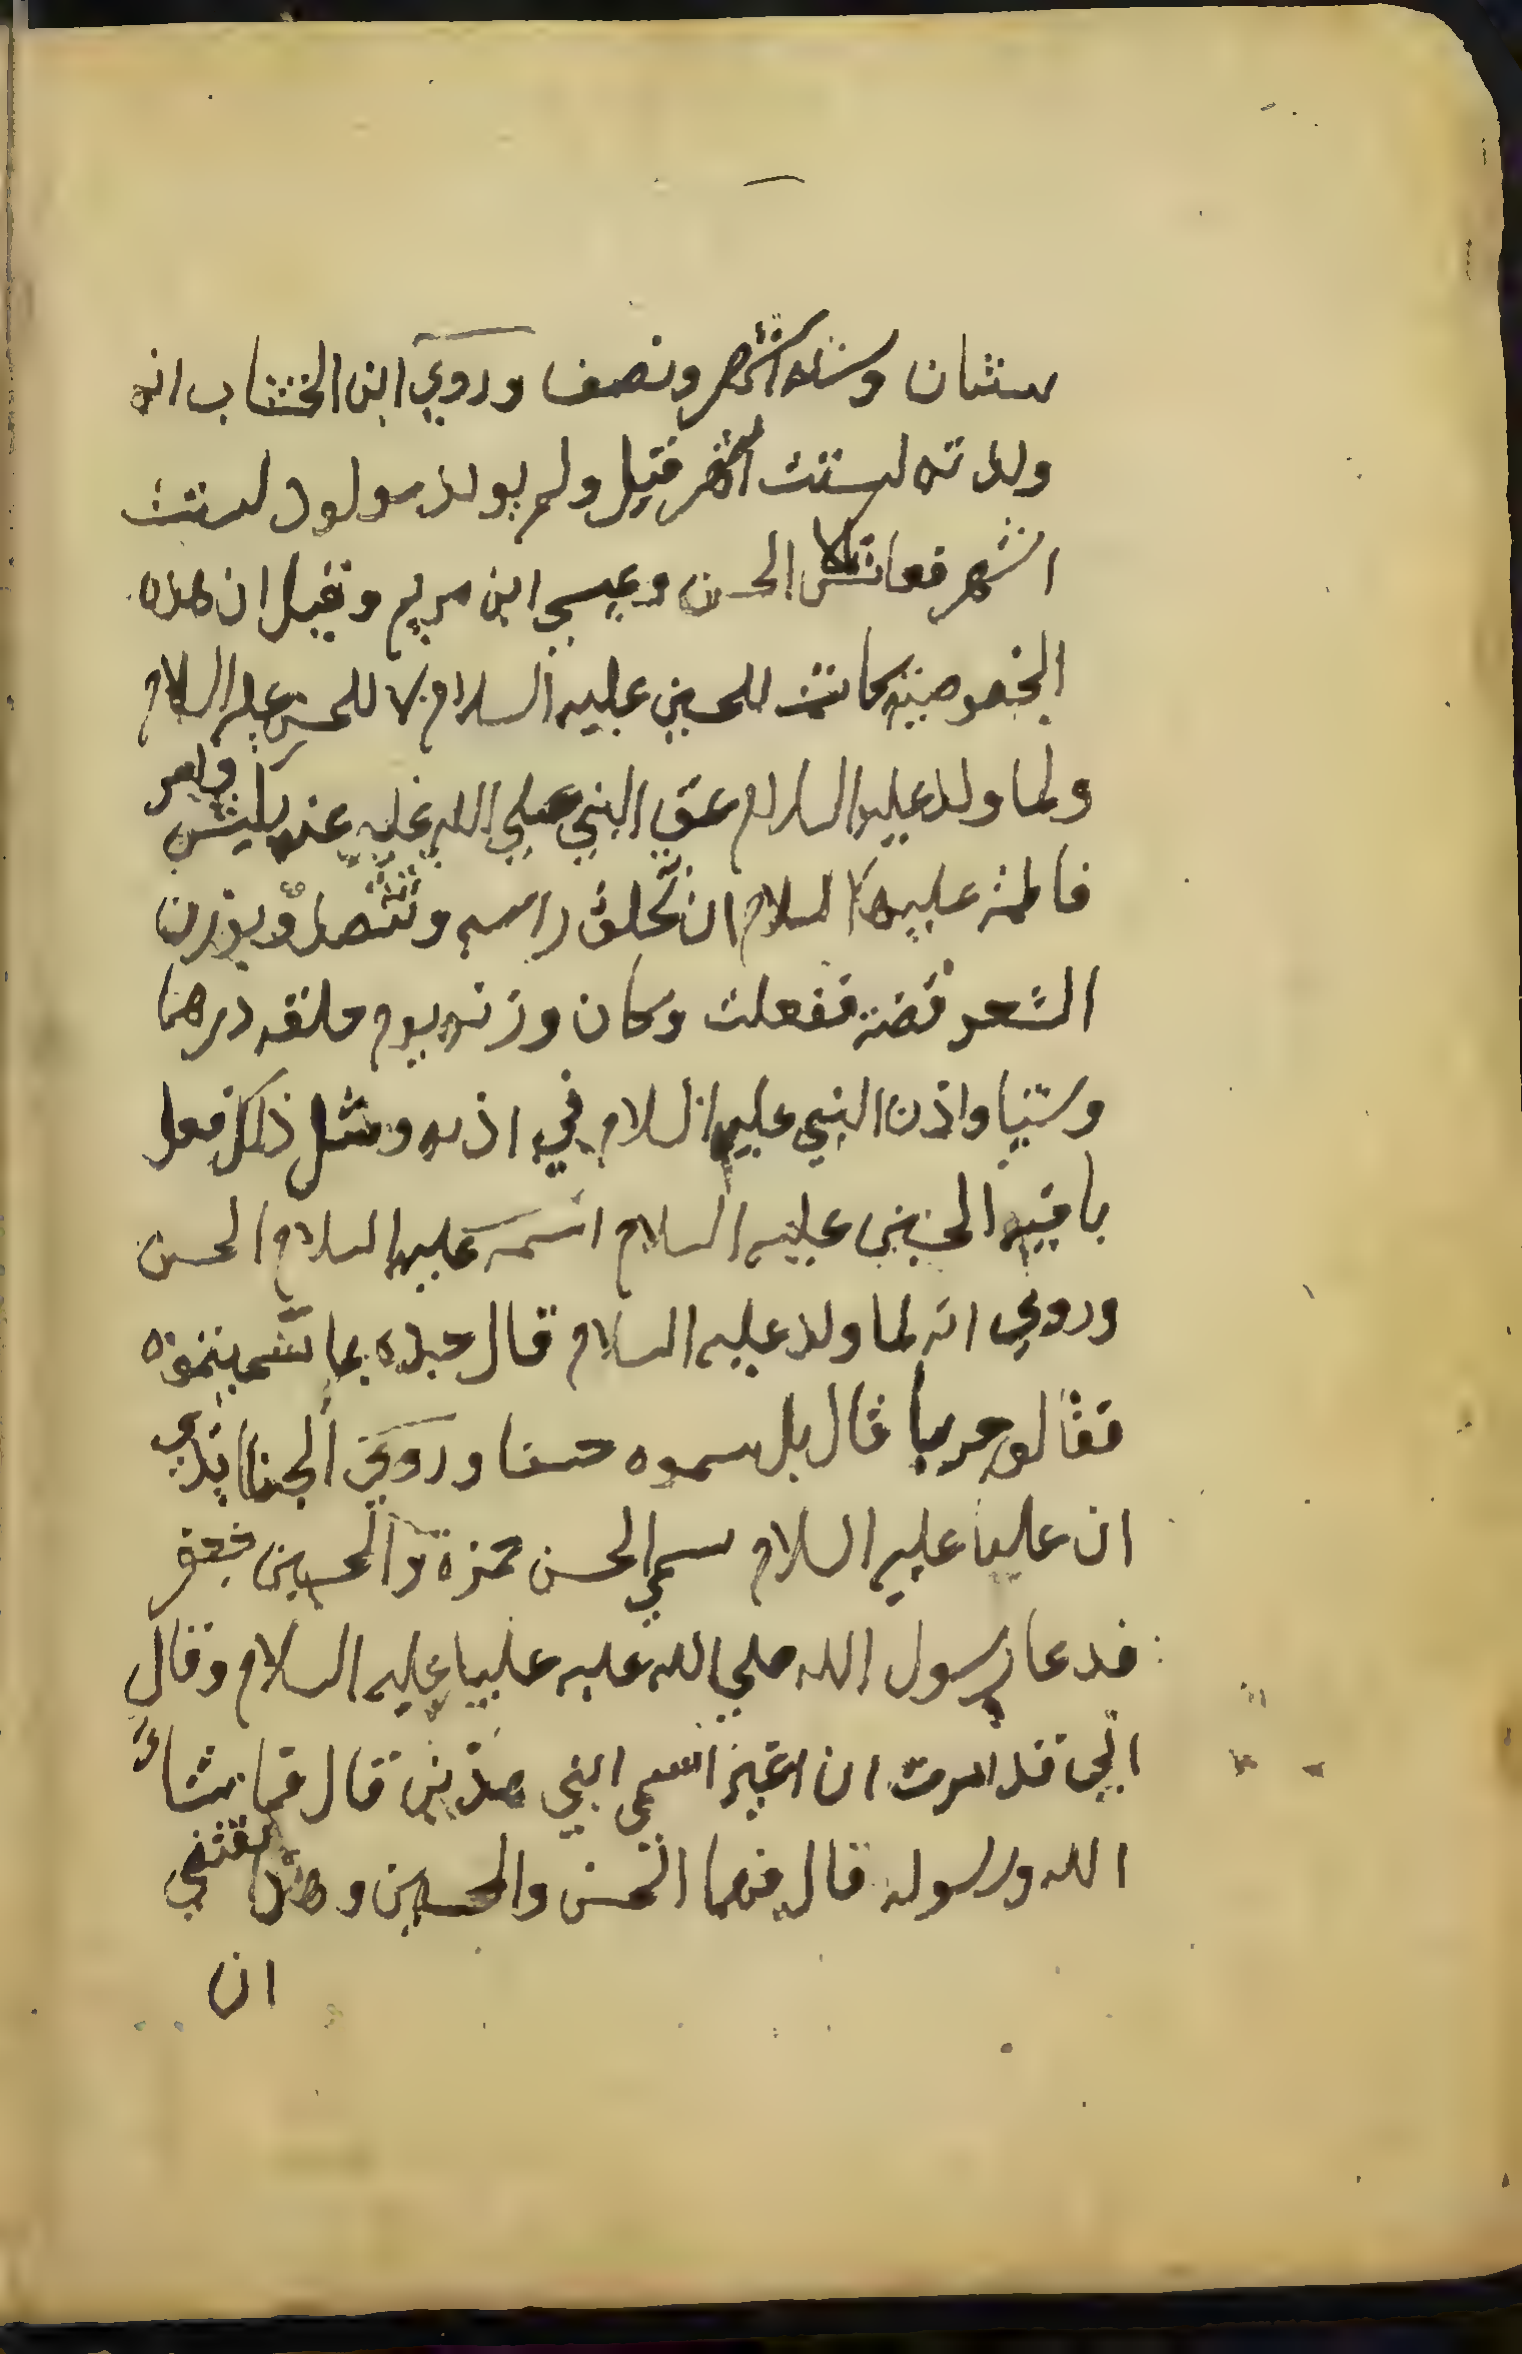 سنتان وستة اشهر ونصف وروي ابن الخشاب انه
ولدته لستت اشهر قيل ولم يولد مولود لستت
اشهر فعاش الا الحسن وعيسي ابن مريم وقيل ان هذه
الخصوصية كانت للحسين عليه السلام لا للحسن عليه السلام
ولما ولد عليه السلام عق النبي صلي الله عليه عنه بكبش وامر
فاطمة عليها السلام ان تحلق راسه وتتصدق بوزن
الشعر فضة ففعلت وكان وزنه يوم حلقه درهما
وستيا واذن النبي عليه السلام في اذنه ومثل ذلك فعل
باقيه الحسين عليه السلام اسمه عليه السلام الحسن
وروي انه لما ولد عليه السلام قال جده بما سميتموه
فقالو حربا قال بل سموه حسنا وروي الجنابذي
ان عليا عليه السلام سمي الحسن حمزة والحسين جعفر
فدعا رسول الله صلي الله عليه عليا عليه السلام وقال
اني قد امرت ان اغير اسمي ابني هذين قال فما شاء
الله ورسوله قال فهما الحسن والحسين وهذا يقتضي
ان